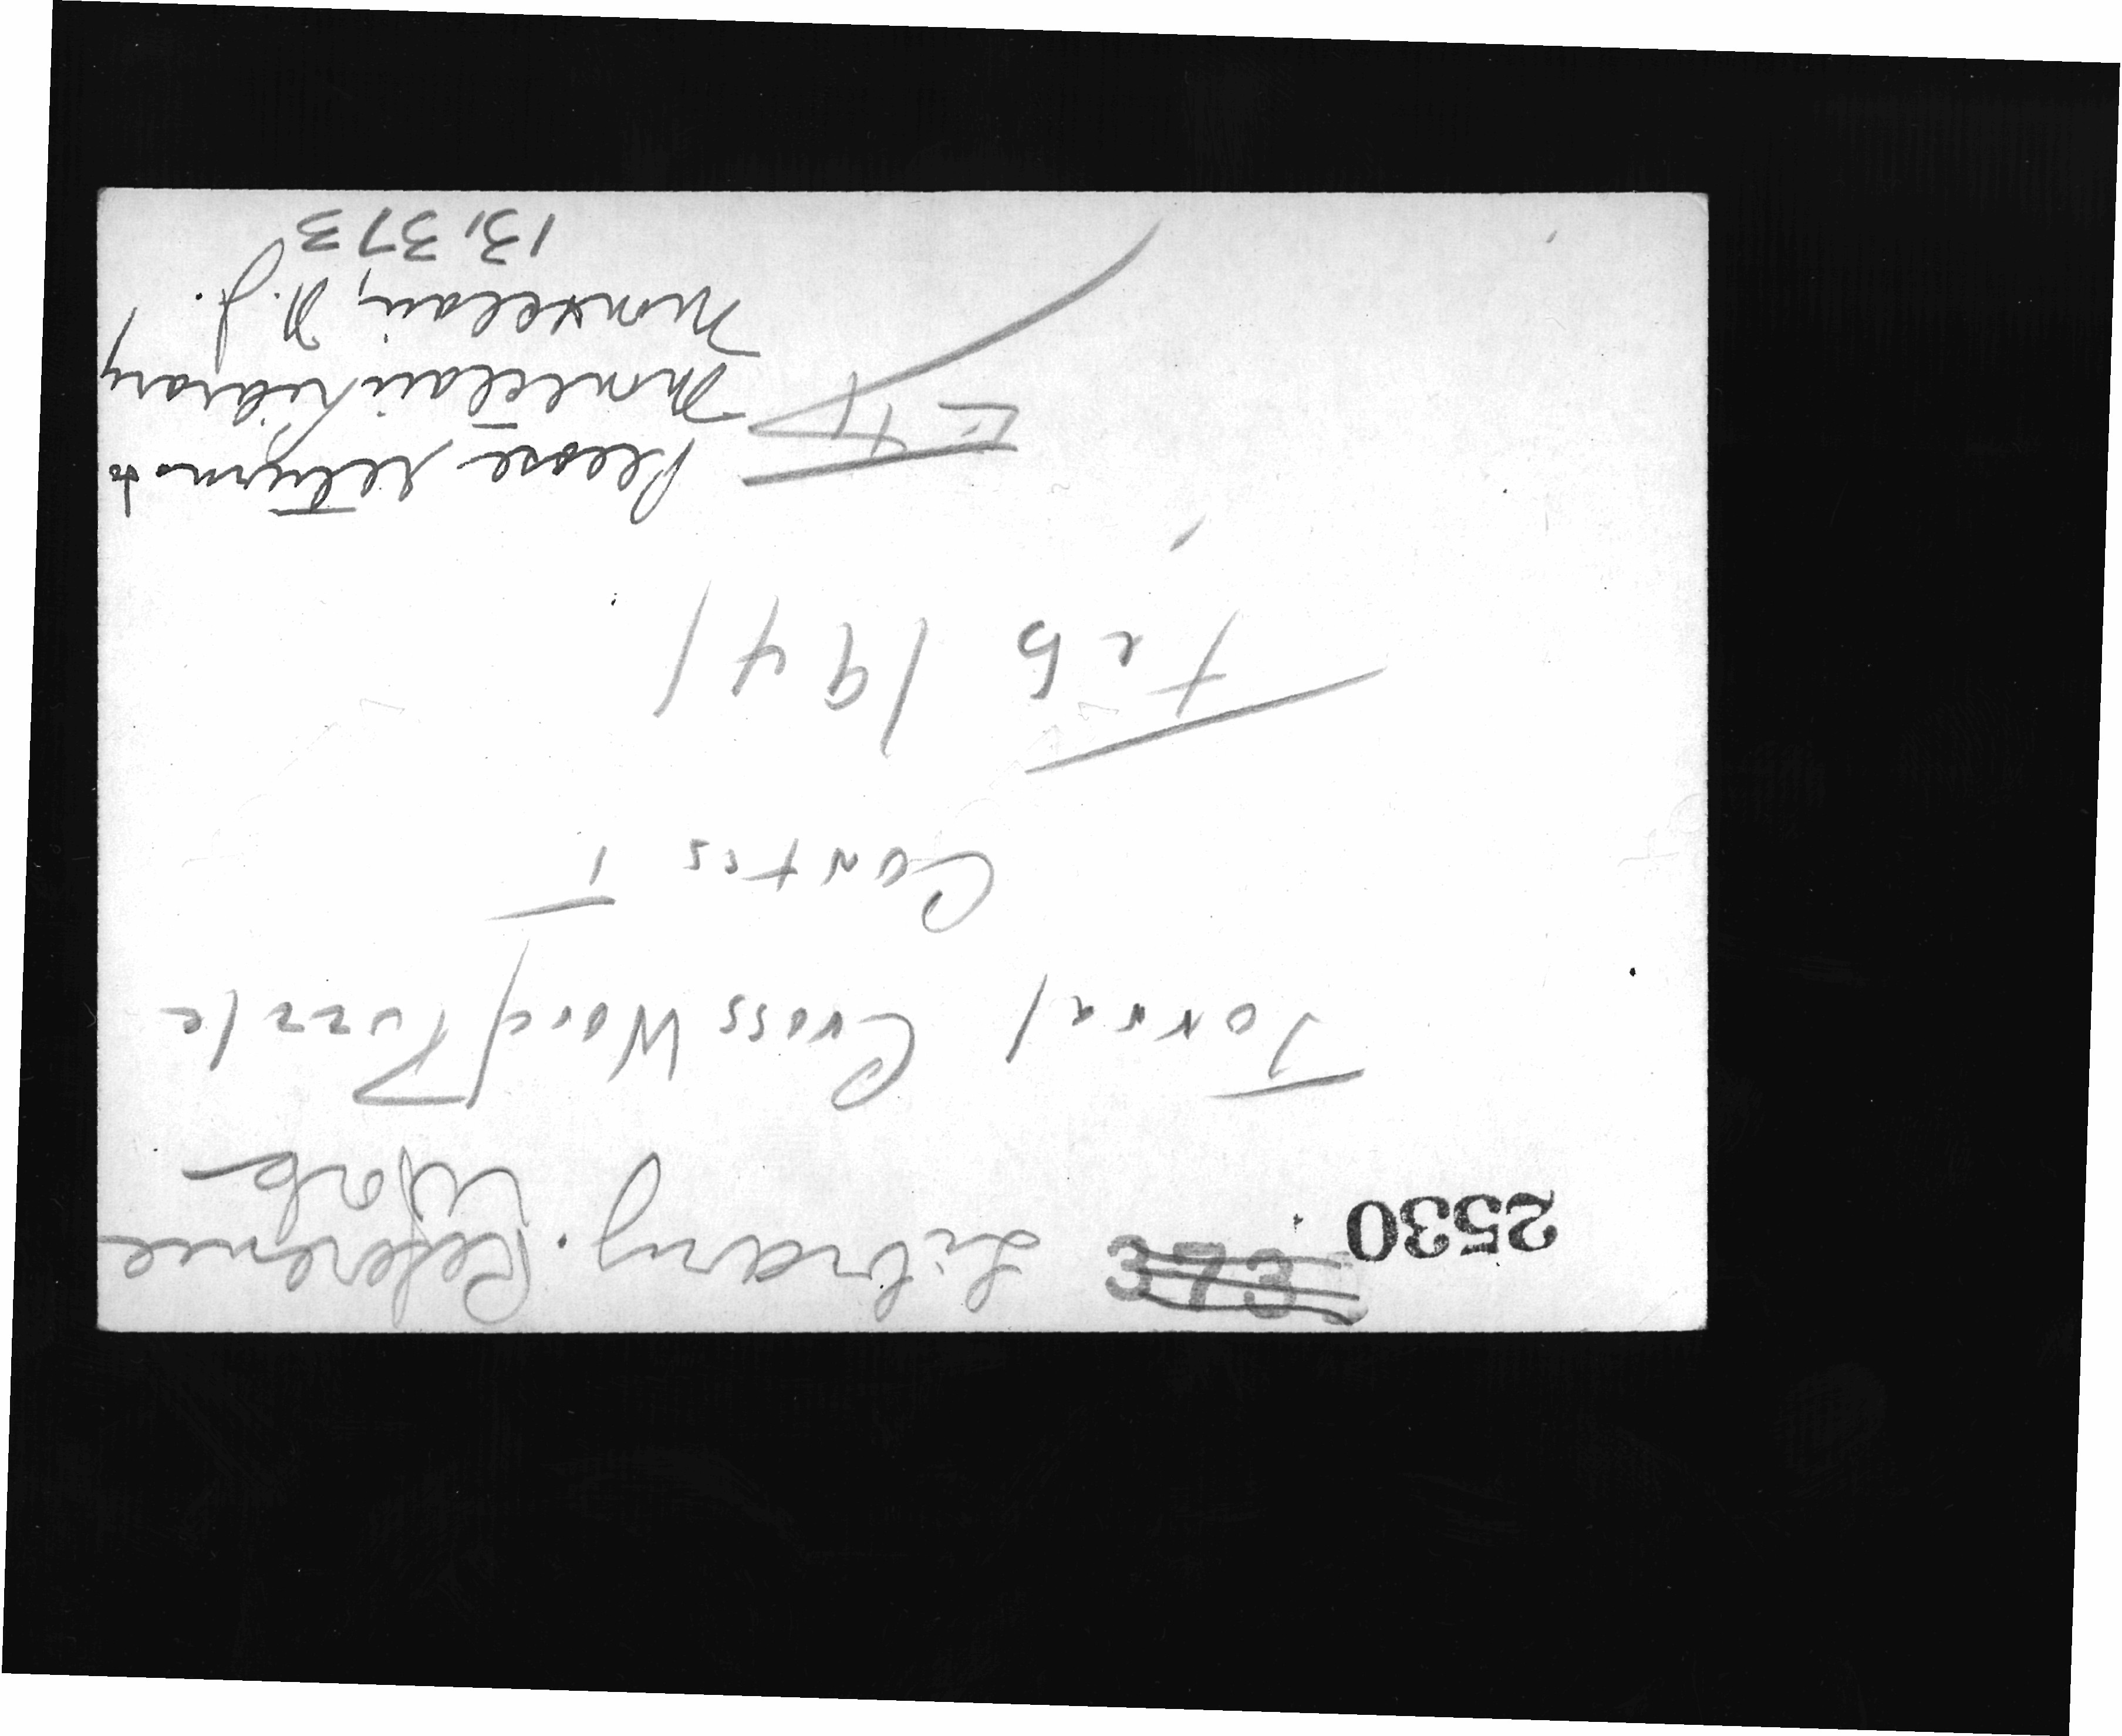 2530 373 Library. Reference
Work
Jornal Cross Word Puzzle
Contest
Feb 1941
Exp
Please return to
Montclair Library
Montclair, N.J.
13,373